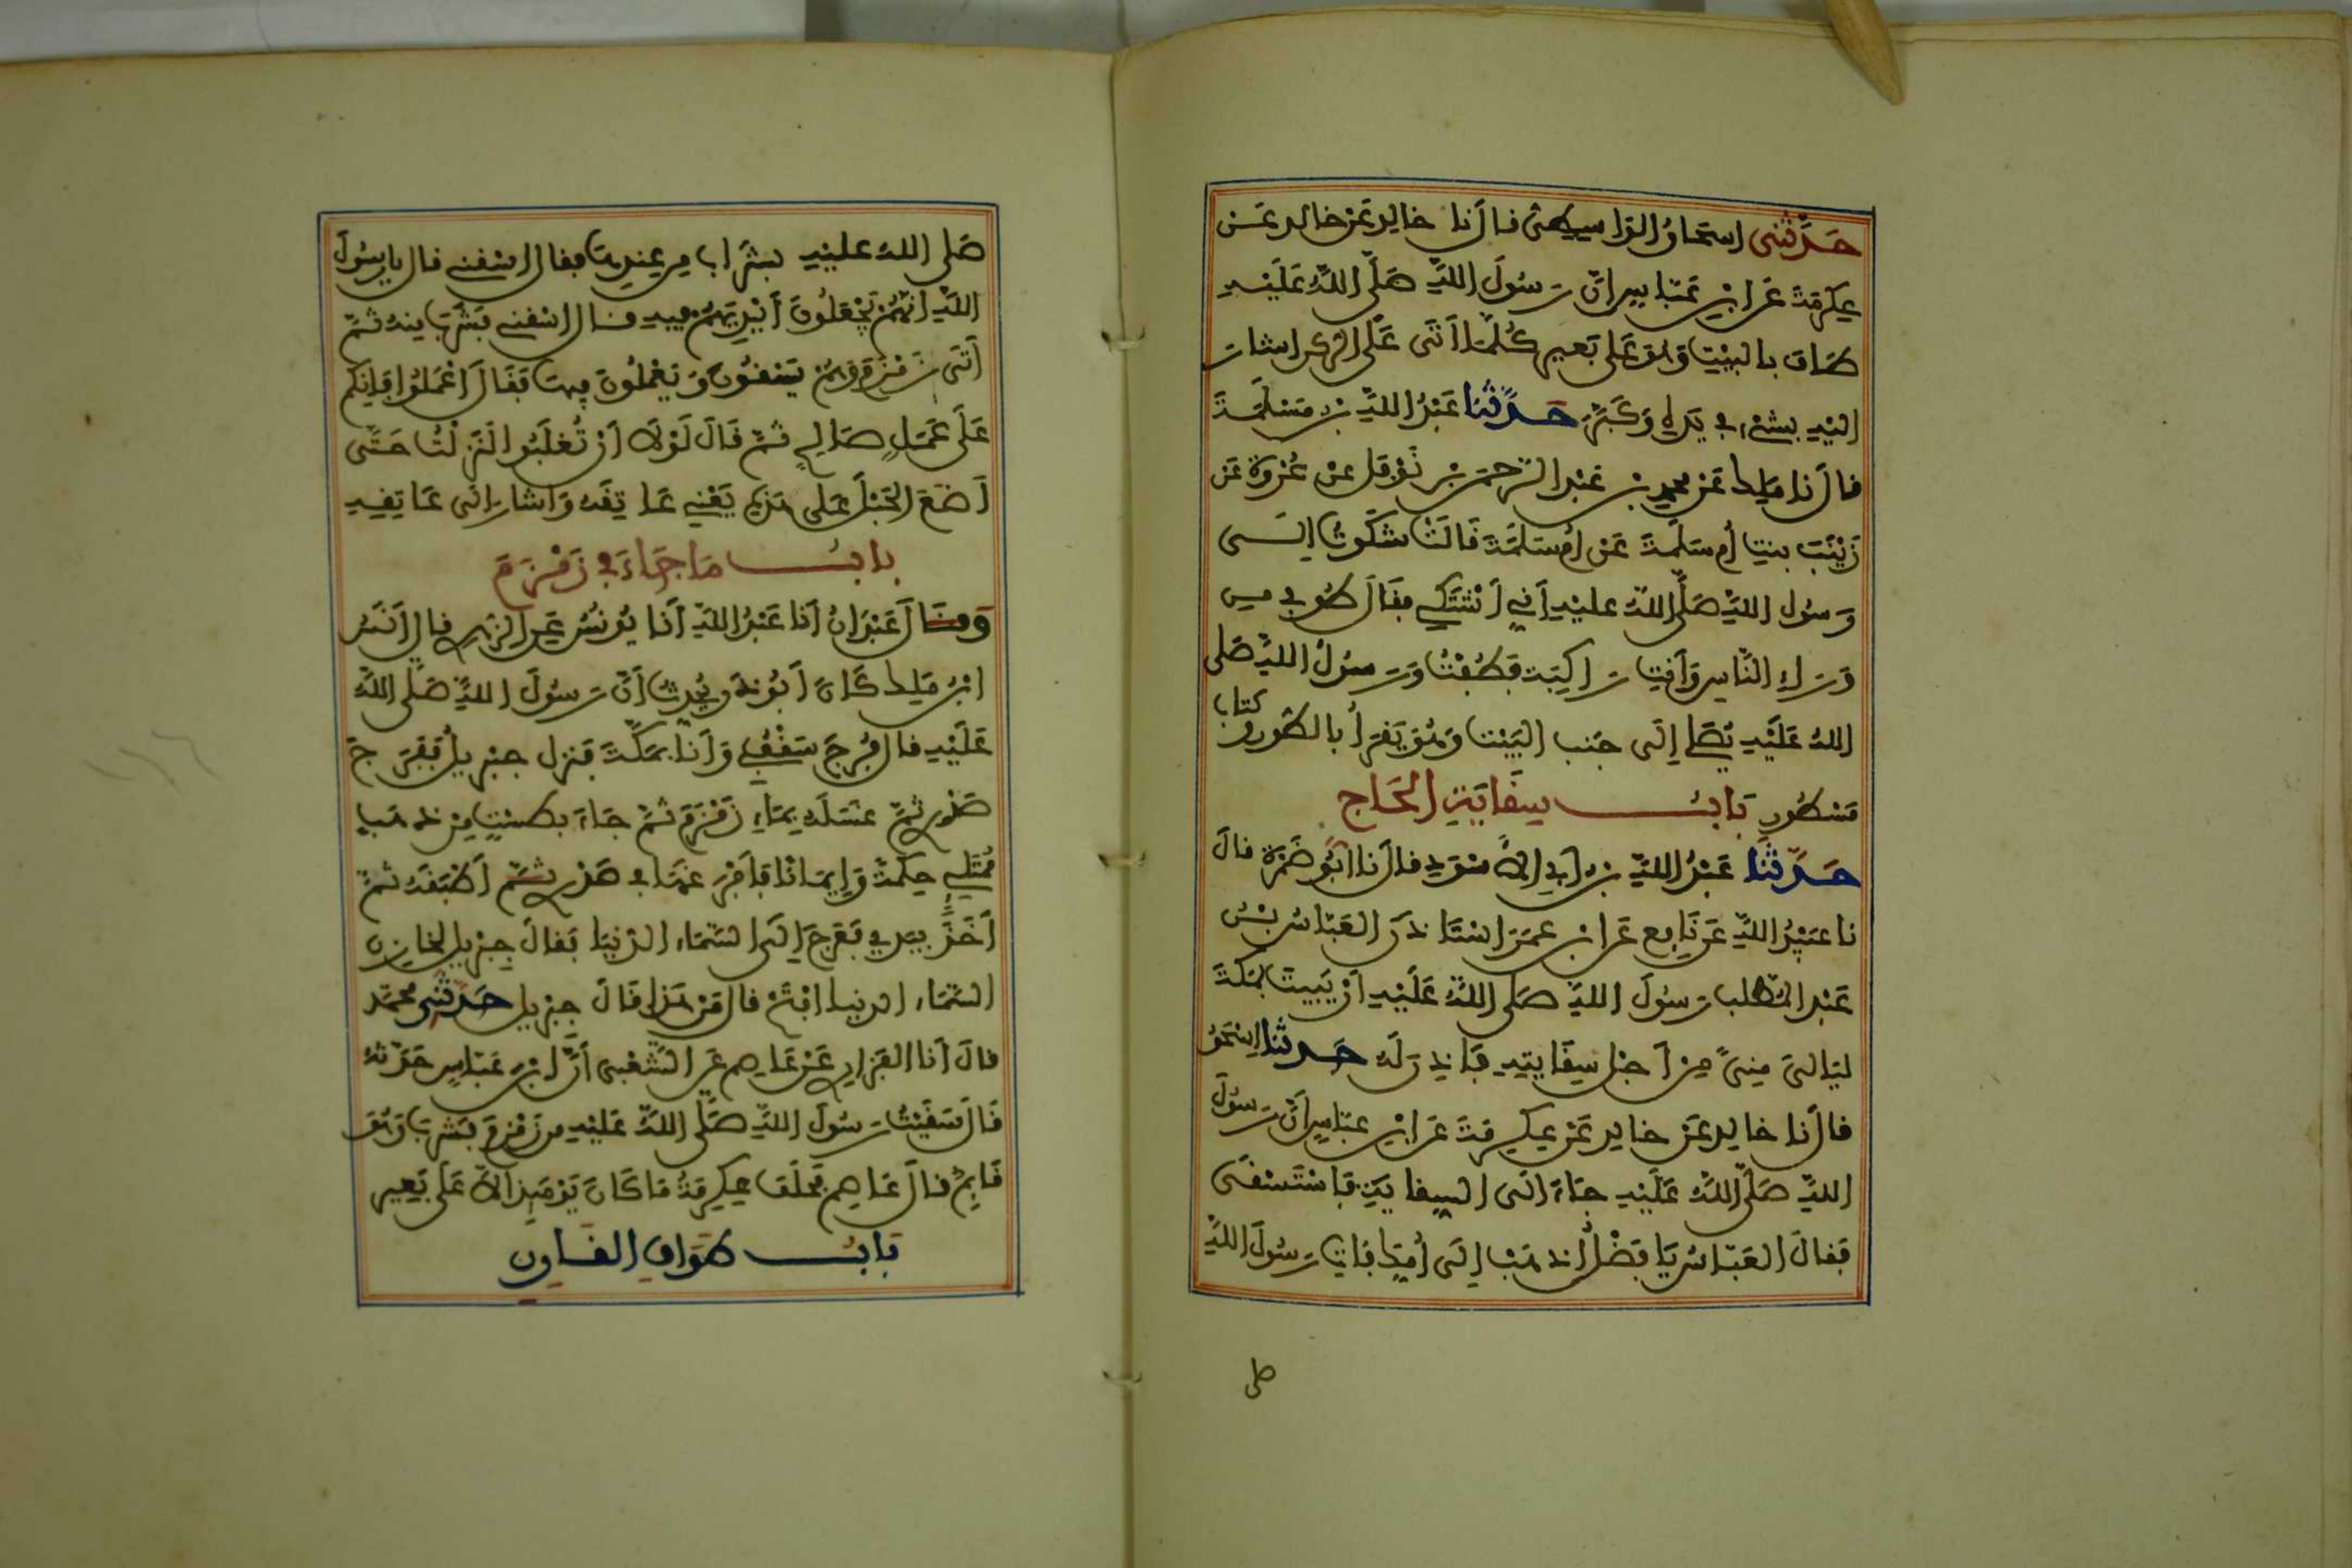 حَدَّثَنِى إسحاق الوَاسِطِىُّ قال نا خالد عَنْ خالد عَنْ
عِكْرِمَةَ عَنِ ابْنِ عَبَّاسٍ انَّ رَسُولَ اللهِ صَلَّى اللهُ عَلَيْهِ
طَافَ بالبيْتِ وَهُوَ عَلَى بَعيرٍ كُلَّمَا أَتَى عَلَى الركن اشار
اليْهِ بِشَىْءٍ في يَدِهِ وَكَبَّرَ حَدَّثَنَا عَبْدُ اللهِ بْنُ مَسْلَمَةَ
قال نا مَلِك عَنْ محمدِ بْنِ عَبْدِ الرَّحمنِ بْنِ نَوْفَلٍ عنْ عُرْوَةَ عَن
زَيْنَبَ بنتِ أُمِّ سَلَمَةَ عَنْ أُمِّ سَلَمَةَ قَالَتْ شَكَوْتُ إِلَى
رَسُولِ اللهِ صَلَّى اللهُ عليْهِ أَنِّي أَشْتَكِي فقَالَ طُوفِي مِن
وَرَاءِ النَّاسِ وَأَنْتِ رَاكِبَة فَطُفْتُ وَرَسُولُ اللهِ صَلى
اللهُ عَلَيْهِ يُصَلِّي إِلَى جَنبِ الْبَيْتِ وَهُوَ يَقْرَأُ بالطُّورِ وَكتاب
مَسْطُورٍ بَابُ سِقَايَةِ الْحَاج
حَدَّثَنَا عَبْدُ اللهِ بنُ أبي الأسْوَدِ قال نا أَبُو ضَمْرَةَ قالَ
نا عُبَيْدُ اللهِ عَنْ نَافِعٍ عَنِ ابْنِ عُمَرَ اسْتَاذَنَ الْعَبَّاسُ بْنُ
عَبْدِ المُطلبِ رَسُولَ اللهِ صَلَّى اللهُ عَلَيْهِ أَنْ يَبِيتَ بِمَكَّةَ
لَيَالِيَ مِنىً مِنْ أَجْلِ سِقَايَتِهِ فَأَذِنَ لَهُ حَدثنا إِسْحَقُ
قال نا خالد عَنْ خالد عَنْ عِكرِمَةَ عَنِ ابْنِ عبَّاسٍ أَنَّ رَسُولَ
اللهِ صَلَّى اللهُ عَلَيْهِ جَاءَ إلَى السِقَايَةِ فَاسْتَسْقَى
فَقَالَ الْعَبَّاسُ يَا فَضْلُ اذهَبْ إِلَى أُمِّكَ فَاتِ رَسُولَ اللهِ
صَلى اللهُ عليْهِ بشَرَابٍ مِن عِنْدِهَا فقال اسْقِني قال يارسُولَ
اللهِ انَّهُمْ يَجْعَلُونَ أَيْدِيَهُمْ فيه قال اسْقِني فَشَرِبَ مِنهُ ثُمَّ
أَتَى زَمْزَمَ وَهُمْ يَسْقُونَ وَيَعْمَلُونَ فِيهَا فَقَالَ اعْمَلُوا فَإِنكم
عَلَى عَمَلٍ صَالِحٍ ثُمَّ قَالَ لَوْلَا أَنْ تُغْلَبُوا لَنَزَلْتُ حَتَّى
أَضَعَ الْحَبْلَ عَلَى هَذِهِ يَعْنِي عَاتِقَهُ وَاشار إلى عَاتِقِهِ
بابُ مَا جَاءَ فِي زَمْزَمَ
وَقَالَ عَبْدَانُ أَنا عَبْدُ اللهِ أَنَا يُونُسُ عَنِ الزهري قال أَنَسُ
ابْنُ مَلِك كَانَ أَبُو ذَرٍّ يُحَدِّثُ أَنَّ رَسُولَ اللهِ صَلَّى اللهُ
عَلَيْهِ قال فُرِجَ سَقْفِي وَأَنَا بمَكَّةَ فَنزل جِبْرِيلُ فَفَرَجَ
صَدْرِي ثُمَّ غَسَلَهُ بِمَاءِ زَمْزَمَ ثُمَّ جَاءَ بِطَسْتٍ مِنْ ذهَبٍ
مُمْتَلِئٍ حِكْمَةً وَإِيمَانًا فَأَفْرَغَهَا فِي صَدْرِي ثُمَّ أَطْبَقَهُ ثُمَّ
أَخَذَ بِيَدِي فَعَرَجَ إِلَى السَّمَاءِ الدُّنْيَا فَقَالَ جِبْرِيل لِخازِنِ
السَّمَاءِ الدنيا افْتَحْ قال مَنْ هَذا قَالَ جِبْرِيل حَدَّثَنِي محمَّد
قالَ أَنا الفَزاري عَنْ عَاصِم عَنِ الشَّعْبِى أَنَّ ابْنَ عَبَّاسٍ حَدَّثَهُ
قَالَ سَقَيْتُ رَسُولَ اللهِ صَلَّى اللهُ عَلَيْهِ مِن زَمْزَمَ فشَرِبَ وَهُوَ
قَائِمٌ قال عَاصِم فحَلَفَ عِكْرِمَةُ مَا كَانَ يَوْمَئِذٍ إلَّا عَلَى بَعِيرٍ
بَابُ طَوَافِ القَارِن
صلى